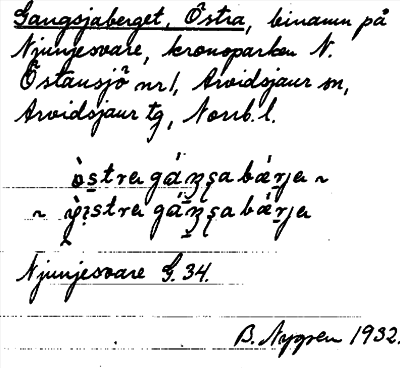 Gangsjaberget, Östra, binamn på
Njunjesvare, kronoparken N.
Östansjö nr 1, Arvidsjaur sn,
Arvidsjaur tg, Norrb. l.
Njunjesvare G. 34.
B. Nygren 1932.